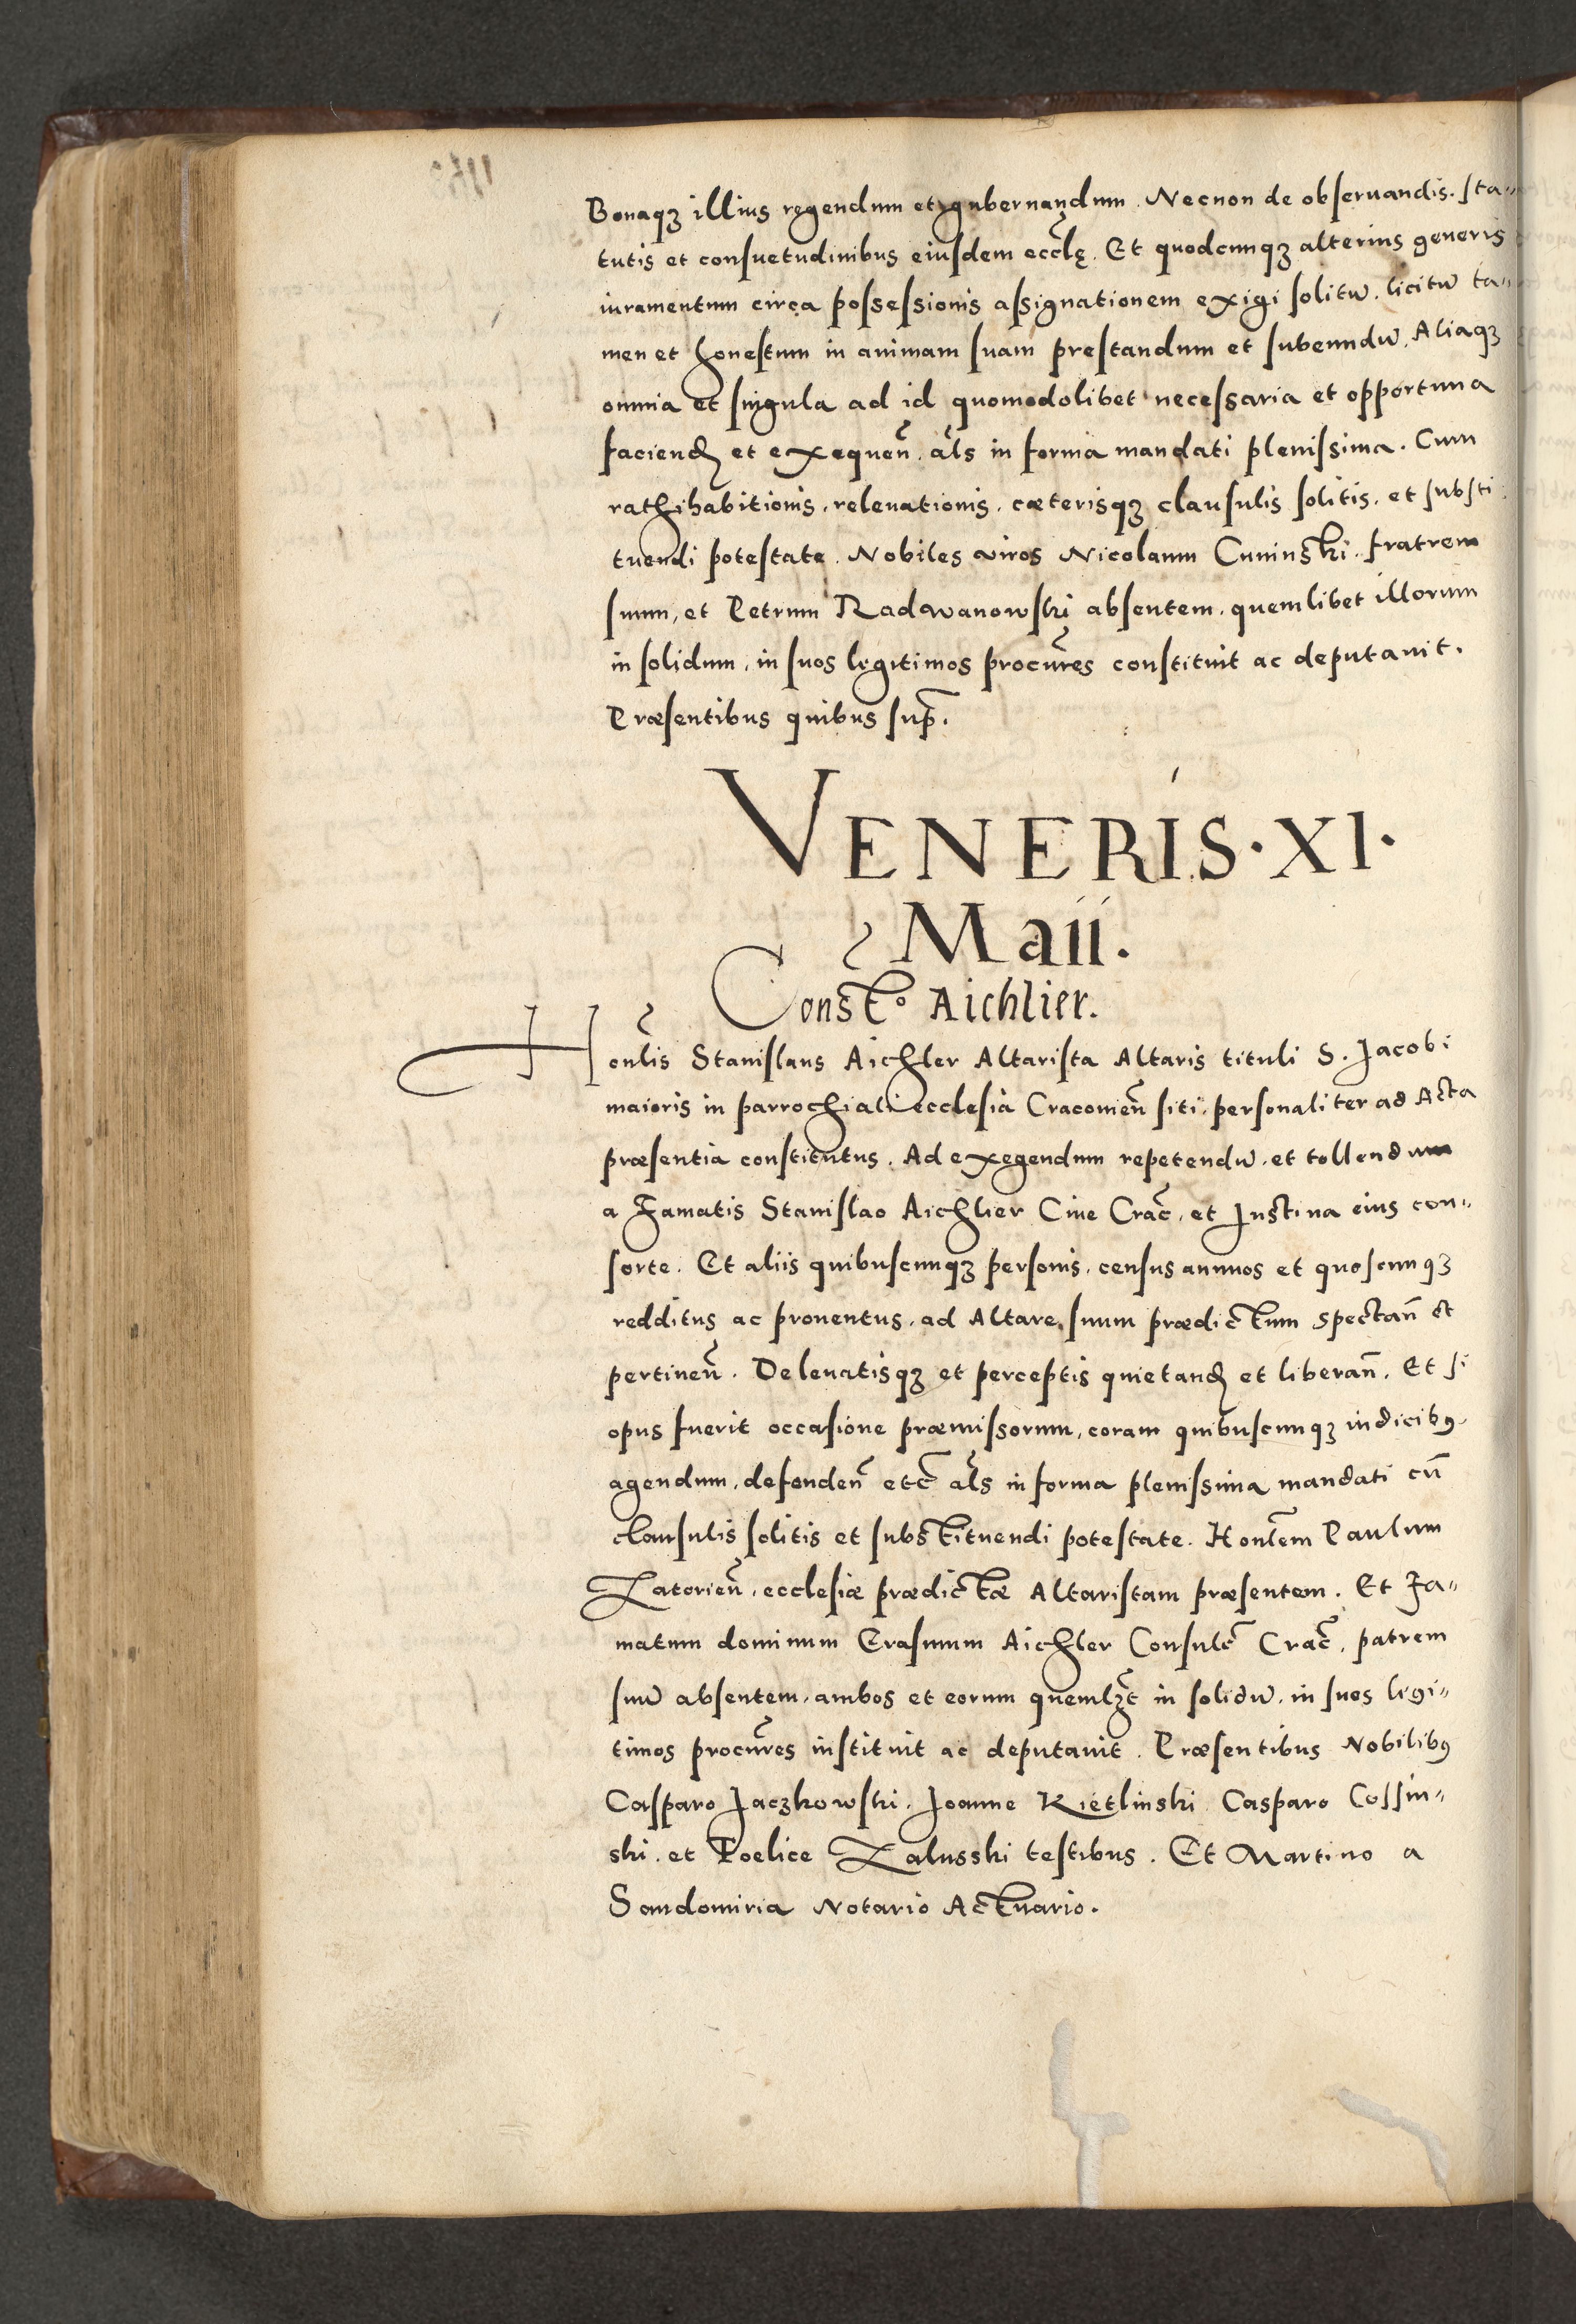 Bonaqꝫ illius regendum et gubernandum. Necnon de obseruandis. sta⸗
tutis et consuetudinibus eiusdem eccl̃ę. Et quodcunqꝫ alterius generis
iuramentum circa possessionis assignationem exigi solitũ. licitũ ta⸗
men et honestum in animam suam prestandum et subeundũ. Aliaqꝫ
omnia et singula ad id quomodolibet necessaria et opportuna
faciend̃ et exequen̄. al̃s in forma mandati plenissima. Cum
rathihabitionis, releuationis, cæterisqꝫ clausulis solitis. et substi⸗
tuendi potestate. Nobiles viros Nicolaum Cuninski fratrem
suum, et Petrum Radwanowski absentem. quemlibet illorum
in solidum, in suos legitimos procur̃es constituit ac deputauit.
Præsentibus quibus sup̃.
VENERIS · XI ·
Maii.
Constº Aichlier.
Honl̃is Stanislaus Aichler Altarista Altaris tituli S. Jacobi
maioris in parrochiali ecclesia Cracouien̄ siti, personaliter ad Acta
præsentia constitutus. Ad exegendum repetendũ. et tollendum
a Famatis Stanislao Aichlier Ciue Crac̃, et Justina eius con⸗
sorte. Et aliis quibuscunqꝫ personis, census annuos et quoscunqꝫ
redditus ac prouentus, ad Altare suum prædictum spectan̄ et
pertinen̄. De leuatisqꝫ et perceptis quietand̃ et liberan̄. Et si
opus fuerit occasione præmissorum, coram quibuscunqꝫ iudicibꝰ
agendum, defenden̄ etc̃ al̃s in forma plenissima mandati cũ
clausulis solitis et substituendi potestate. Honl̃em Paulum
Zatorien̄, ecclesiæ prædictæ Altaristam præsentem. Et Fa⸗
matum dominum Erasmum Aichler Consulẽ Crac̃, patrem
suũ absentem, ambos et eorum queml̃ꝫt in solidũ, in suos legi⸗
timos procur̃es instituit ac deputauit. Præsentibus Nobilibꝰ
Casparo Jaczkowski. Joanne Kietlinski Casparo Cossin⸗
ski. et Foelice Zalusski testibus. Et Martino a
Sandomiria Notario Actuario.